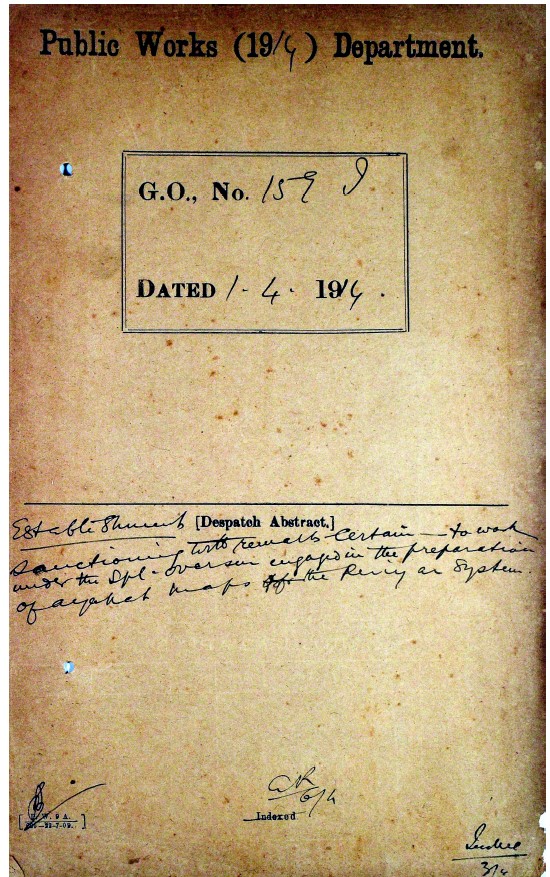 Public Works (19/4) Department.
G.O., No. 159 I
DATED 1-4. 1914.
Establishment [Despatch Abstract.]
Sanctioning with remarks certain — to work
under the Spl. overseer engaged in the preparation
of ayakat maps of the Periyar System.
6/4
[P. W. 9 A.
—22-7-09.]
Indexed
3/4